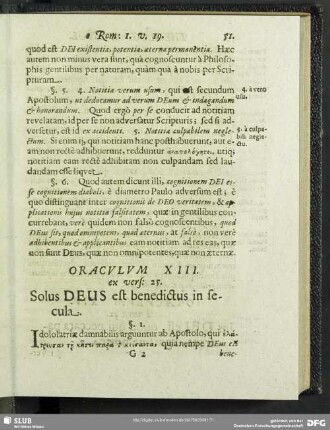 Rom: 1. v. 19. 51.
quod est DEI existentia, potentia, æterna permanentia. Hæc
autem non minus vera sunt, quà cognoscuntur à Philoso-
phis gentilibus per naturam, quàm quà à nobis per Scri-
pturam.
§. 5. 4. Notitia verum usum, qui est secundum
4. à vero
usu,
Apostolum, ut deducamur ad verum DEum & indagandum
& honorandum. Quod ergò per se conducit ad notitiam
revelatam, id per se non adversatur Scripturis; sed si ad-
versetur, est id ex accidenti. 5. Notitia culpabilem negle-
5. à culpa-
bili negle-
ctu.
ctum. Si enim ij, qui notitiam hanc posthabuerunt, aut e-
am non rectè adhibuerunt, redduntur ἀναπολόγητοι, utiq;
notitiam eam rectè adhibitam non culpandam sed lau-
dandam esse liqvet.
§. 6. Quod autem dicunt illi, cognitionem DEI es-
se cognitionem diaboli, è diametro Paulo adversum est, è
quo distinguant inter cognitionis de DEO veritatem, & ap-
plicationis hujus notitiæ falsitatem, quæ in gentilibus con-
currebant, verè quidem non falsò cognoscentibus, quod
DEus sit, quod omnipotens, quod æternus, at falsò, non verè
adhibentibus & applicantibus eam notitiam ad res eas, quæ
non sunt DEus, quæ non omnipotentes, quæ non æternæ.
ORACVLVM XIII.
ex vers: 25.
Solus DEUS est benedictus in se-
cula.
§. 1.
Idololatriæ damnabilis arguuntur ab Apostolo, qui
quia nempe DEus est
G 2 bene-
SLUB
DFG